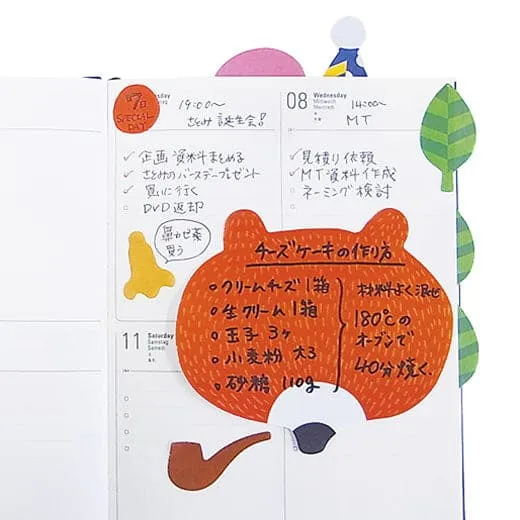 7日
SPECIAL
DAY
19:00〜
さとみ誕生会!
✓ 企画資料まとめる
✓ さとみのバースデープレゼント
✓ 買いに行く
DVD返却
鼻かぜ薬
買う
08 Wednesday
Mittwoch
Mercredi
14:00〜
MT
✓ 見積り依頼
✓ MT資料作成
ネーミング検討
チーズケーキの作り方
クリームチーズ1箱
生クリーム1箱
玉子 3ヶ
小麦粉 大3
砂糖 110g
材料よく混ぜ
180℃の
オーブンで
40分焼く。
11 Saturday
Samstag
Samedi